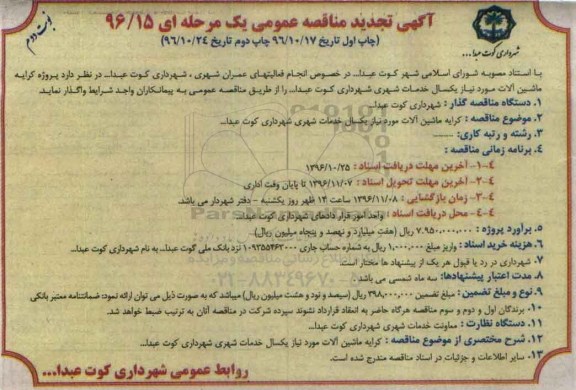 آگهی تجدید مناقصه عمومی یک مرحله ای ۹۶/۱۵
نوبت دوم
(چاپ اول تاریخ ۹۶/۱۰/۱۷ چاپ دوم تاریخ ۹۶/۱۰/۲۴)
شهرداری کوت عبدا...
با استناد مصوبه شورای اسلامی شهر کوت عبدا... در خصوص انجام فعالیتهای عمران شهری ، شهرداری کوت عبدا... در نظر دارد پروژه کرایه
ماشین آلات مورد نیاز یکسال خدمات شهری شهرداری کوت عبدا... را از طریق مناقصه عمومی به پیمانکاران واجد شرایط واگذار نماید.
۱. دستگاه مناقصه گذار : شهرداری کوت عبدا...
۲. موضوع مناقصه : کرایه ماشین آلات مورد نیاز یکسال خدمات شهری شهرداری کوت عبدا...
۳. رشته و رتبه کاری: ------
۴. برنامه زمانی مناقصه :
۴-۱- آخرین مهلت دریافت اسناد : ۱۳۹۶/۱۰/۲۵
۴-۲- آخرین مهلت تحویل اسناد : ۱۳۹۶/۱۱/۰۷ تا پایان وقت اداری
۴-۳- زمان بازگشایی : ۱۳۹۶/۱۱/۰۸ ساعت ۱۳ ظهر روز یکشنبه - دفتر شهردار می باشد.
۴-۴- محل دریافت اسناد : واحد امور قرار دادهای شهرداری کوت عبدا...
۵. برآورد پروژه : ۷.۹۵۰.۰۰۰.۰۰۰ ریال (هفت میلیارد و نهصد و پنجاه میلیون ریال)
۶. هزینه خرید اسناد : واریز مبلغ ۱.۰۰۰.۰۰۰ ریال به شماره حساب جاری ۰۱۰۹۳۵۵۴۶۳۰۰۰ نزد بانک ملی کوت عبدا... به نام شهرداری کوت عبدا...
۷. شهرداری در رد یا قبول هر یک از پیشنهاد ها مختار است.
۸. مدت اعتبار پیشنهادها: سه ماه شمسی می باشد
۹. نوع و مبلغ تضمین : مبلغ تضمین ۳۹۸.۰۰۰.۰۰۰ ریال (سیصد و نود و هشت میلیون ریال) میباشد که به صورت ذیل می توان ارائه نمود: ضمانتنامه معتبر بانکی
۱۰. برندگان اول و دوم و سوم مناقصه هرگاه حاضر به انعقاد قرارداد نشوند سپرده شرکت در مناقصه آنان به ترتیب ضبط خواهد شد.
۱۱. دستگاه نظارت : معاونت خدمات شهری شهرداری کوت عبدا...
۱۲. شرح مختصری از موضوع مناقصه : کرایه ماشین آلات مورد نیاز یکسال خدمات شهری شهرداری کوت عبدا...
۱۳. سایر اطلاعات و جزئیات در اسناد مناقصه مندرج شده است.
روابط عمومی شهرداری کوت عبدا...